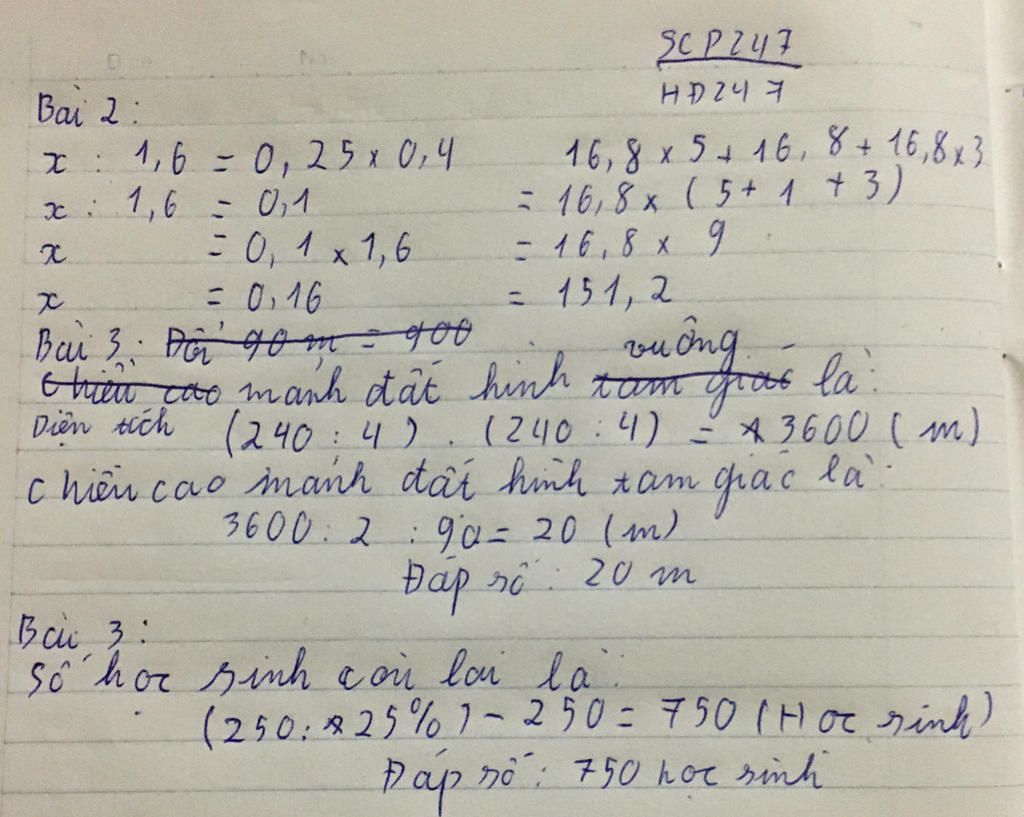 SCP247
HD247
Bài 2:
x : 1,6 = 0,25 x 0,4
x : 1,6 = 0,1
x = 0,1 x 1,6
x = 0,16
16,8 x 5 + 16,8 + 16,8 x 3
= 16,8 x (5 + 1 + 3)
= 16,8 x 9
= 151,2
Bài 3: Đổi 90 m = 900
vuông
Chiều cao mảnh đất hình tam giác là:
Diện tích (240 : 4) . (240 : 4) = 3600 (m)
Chiều cao mảnh đất hình tam giác là:
3600 : 2 : 90 = 20 (m)
Đáp số: 20 m
Bài 3:
Số học sinh còn lại là:
(250 : 25%) - 250 = 750 (Học sinh)
Đáp số: 750 học sinh